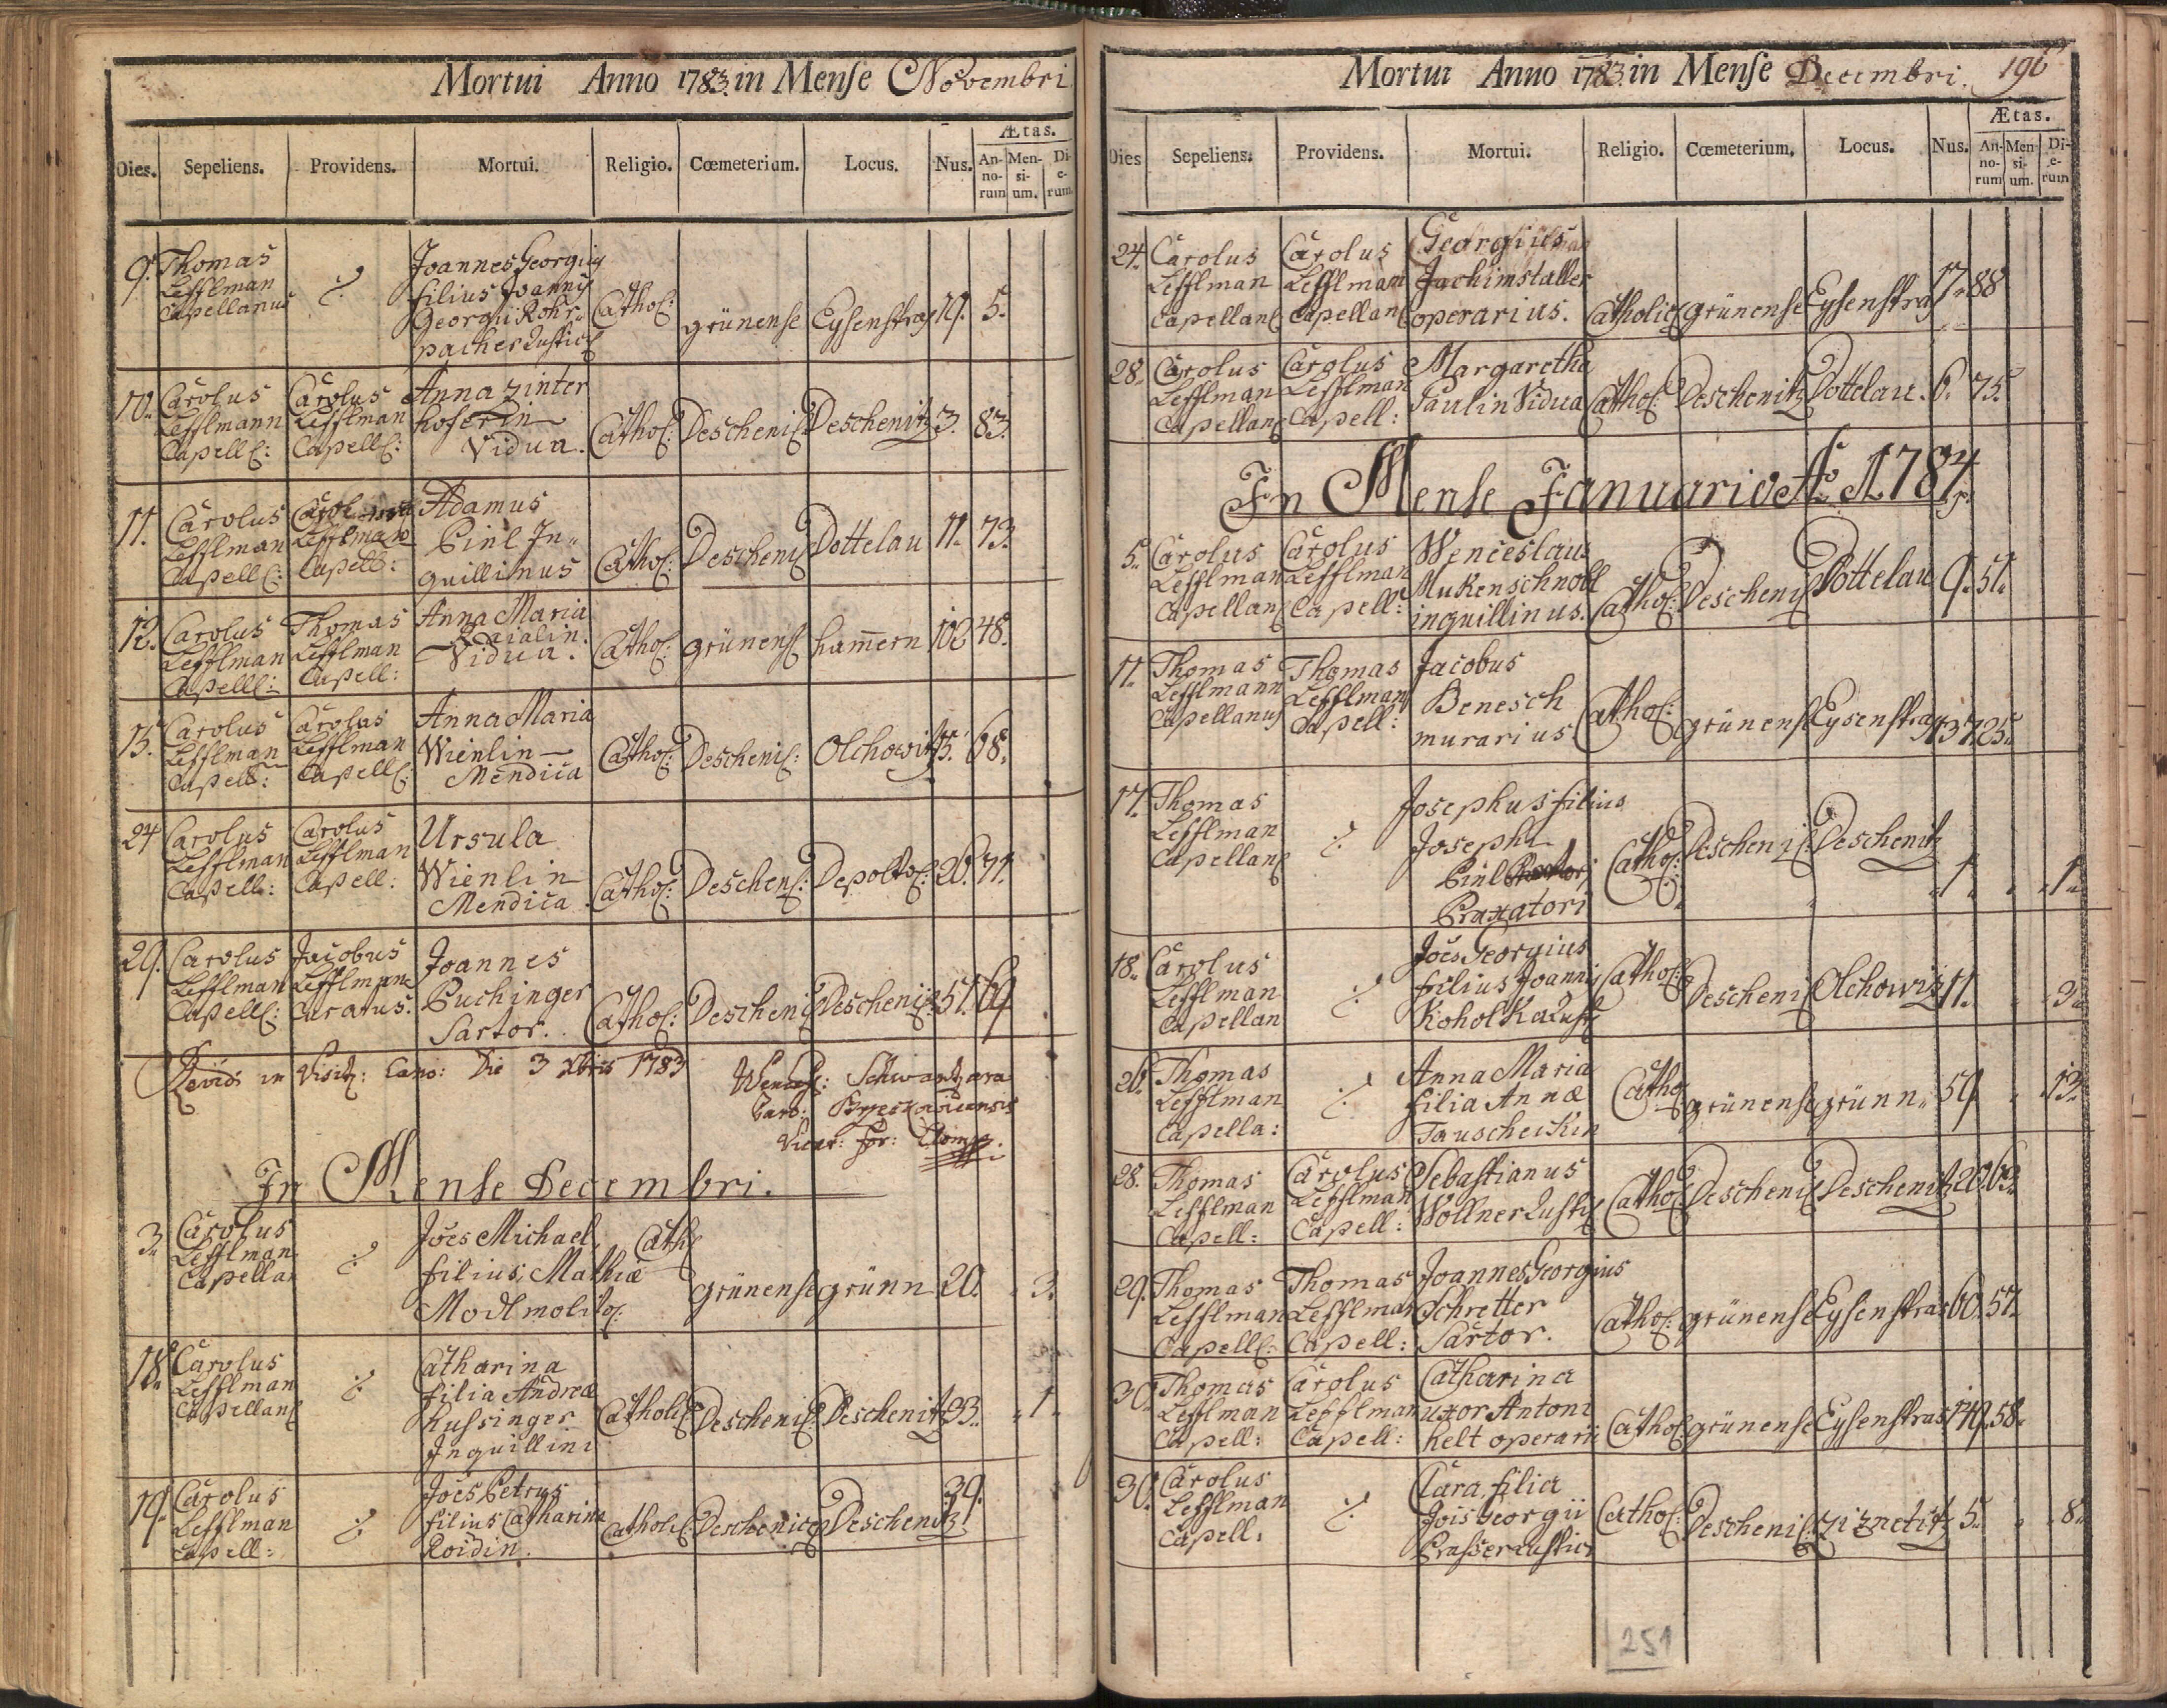 Mortui Anno 1783. in Mense Novembri
Ætas.
Dies. Sepeliens. Providens. Mortui. Religio. Cœmeterium. Locus. Nus. An-no-rum Men-si-um. Di-e-rum
9. Thomas Lefflman Capellanus ·/. Joannes Georgius filius Joannis Georgii Rohr„ pacher Rustici Cathol: grünense Eysenstras 19. 5.
10. Carolus Lefflmann Capell: Carolus Lefflman Capell: Anna Zinter hoferin Vidua. Cathol: Descheni: Deschenitz 3. 83.
11. Carolus Lefflman Capell: Lefflman Capell: Adamus Pinl In„ quillinus Cathol: Descheni Dottelau 11. 73.
12. Carolus Lefflman Capell: Thomas Lefflman Capell: Anna Maria Vidua. Cathol: grünens ham̄ern 102 48.
15. Carolus Lefflman Capell: Carolus Lefflman Capell: Anna Maria Wienlin Mendica Cathol: Descheni: Olchowitz 15. 68.
24 Carolus Lefflman Capell: Carolus Lefflman Capell: Ursula Wienlin Mendica Cathol: Deschen: Depolts: 26. 71.
29. Carolus Lefflman Capell: Jacobus Lefflman Curatus. Joannes Puchinger Sartor. Cathol: Descheni Deschenitz 51. 69
Revidi in Visit: Cano: Die 3 Xbris 1783
Wencesl: Schwartz
Vicar: For:
In Mense Decembri.
3. Carolus Lefflman Capella ·/. Joēs Michael, filius Mathiæ Modl molito: Cath grünense grünn 20. „ 3.
18. Carolus Lefflman Capellan ·/. Catharina filia Andreæ Kussinger Inquillini Catholi: Descheni: Deschenitz 33. „ 1.
19. Carolus Lefflman Capell: ·/. Joēs Petrus filius Catharinæ Roidin. Catholi: Deschenice Deschenitz 39.
Mortui Anno 1783 in Mense Decembri. 196
Ætas.
Dies Sepeliens. Providens. Mortui. Religio. Cœmeterium. Locus. Nus. An-no-rum Men-si-um. Di-e-rum
24. Carolus Lefflman Capellan Carolus Lefflman Capellan Georgius Jachimstaller operarius. Catholic grünense Eysenstras 17. 88
28. Carolus Lefflman Capellan Carolus Lefflman Capell: Margaretha Paulin Vidua Cathol: Deschenitz Dottelau. 6. 75.
In Mense Januario Ao 1784.
5. Carolus Lefflman Capellan Carolus Lefflman Capell: Wenceslaus Mukenschnobl inquillinus. Cathol: Descheni Dottelau 9. 51.
11. Thomas Lefflmann Capellanus Thomas Lefflman Capell: Jacobus Benesch murarius Cathol: grünens Eysenstras
17. Thomas Lefflman Capellan ·/. Josephus filius Josephi Pinl Braxatori Cathol: Descheni: Deschenitz „ 1 „ „ 1 „
18. Carolus Lefflman Capellan ·/. Joēs Georgius filius Joannis Koholka Rust Cathol: Descheni Olchowitz 11. „ 3.
26. Thomas Lefflman Capella: ·/. Anna Maria filia Annæ Tauscheckin Cathol grünense grünn. 59 „ 13.
28. Thomas Lefflman Capell: Carolus Lefflman Capell: Sebastianus Wollner Rusti Cathol Descheni Deschenitz 20. 62.
29. Thomas Lefflman Capell: Thomas Lefflman Capell: Joannes Georgius Schretter Sartor. Cathol: grünense Eysenstras 60. 57.
30. Thomas Lefflman Capell: Carolus Lefflman Capell: Catharina uxor Antoni helt operarii Cathol: grünense Eysenstras 119. 58.
30. Carolus Lefflman Capell: ·/. Clara filia Jois Georgii Prasser Rustici Cathol: Descheni: Ziznetitz 5. „ „ 8.
251